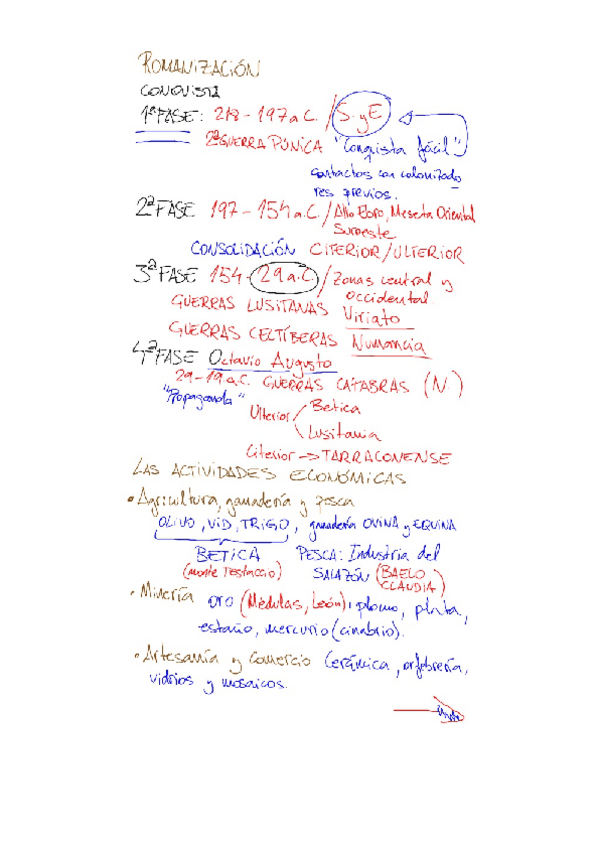 ROMANIZACIÓN
CONQUISTA
1ªFASE: 218-197a.C./S. y E
2ªGUERRA PÚNICA "Conquista fácil"
contactos con colonizado
res previos.
2ªFASE 197-154a.C./Alto Ebro, Meseta Oriental
Suroeste
CONSOLIDACIÓN CITERIOR/ULTERIOR
3ªFASE 154-29a.C/Zonas central y
occidental
GUERRAS LUSITANAS Viriato
GUERRAS CELTÍBERAS Numancia
4ªFASE Octavio Augusto
29-19a.C. GUERRAS CATABRAS (N)
"Propaganda"
Ulterior/Betica
\Lusitania
Citerior->TARRACONENSE
LAS ACTIVIDADES ECONÓMICAS
•Agricultura, ganadería y pesca
OLIVO, VID, TRIGO, ganadería OVINA y EQUINA
BETICA PESCA: Industria del
(monte Testaccio) SALAZÓN (BAELO
CLAUDIA)
•Minería oro (Médulas, León), plomo, plata,
estaño, mercurio (cinabrio).
•Artesanía y Comercio Cerámica, orfebrería,
vidrios y mosaicos.